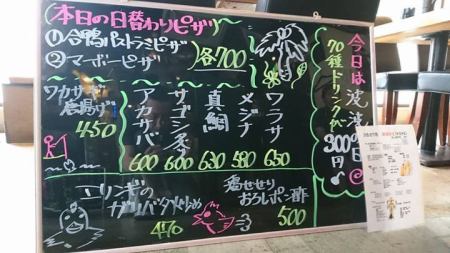 本日の日替わりピザ
①合鴨パストラミピザ
②マーボーピザ
各700
今日は波波の日
70種ドリンクが
300円♪
ワカサギ
唐揚げ
450
アカサバ
600
サゴシ炙り
600
真鯛
630
メジナ
580
ワラサ
650
エリンギの
ガリバタ炒め
470
鶏せせり
おろしポン酢
500